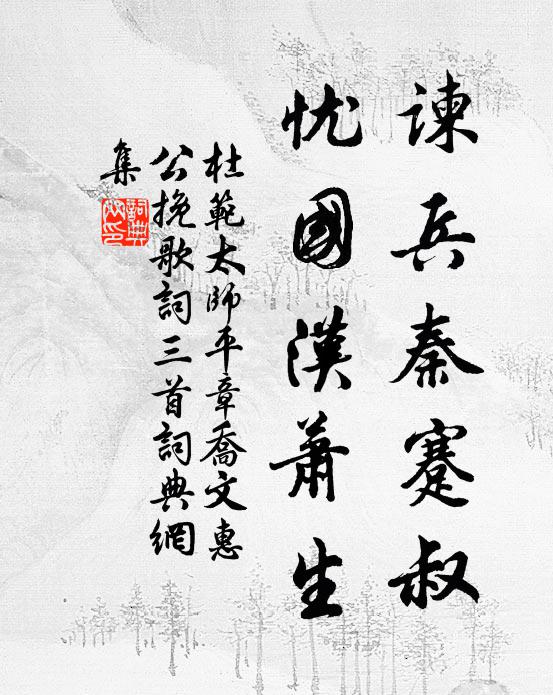 諫兵秦蹇叔
忧國漢蕭生
杜範太師平章喬文惠
公挽歌詞三首詞典網
集